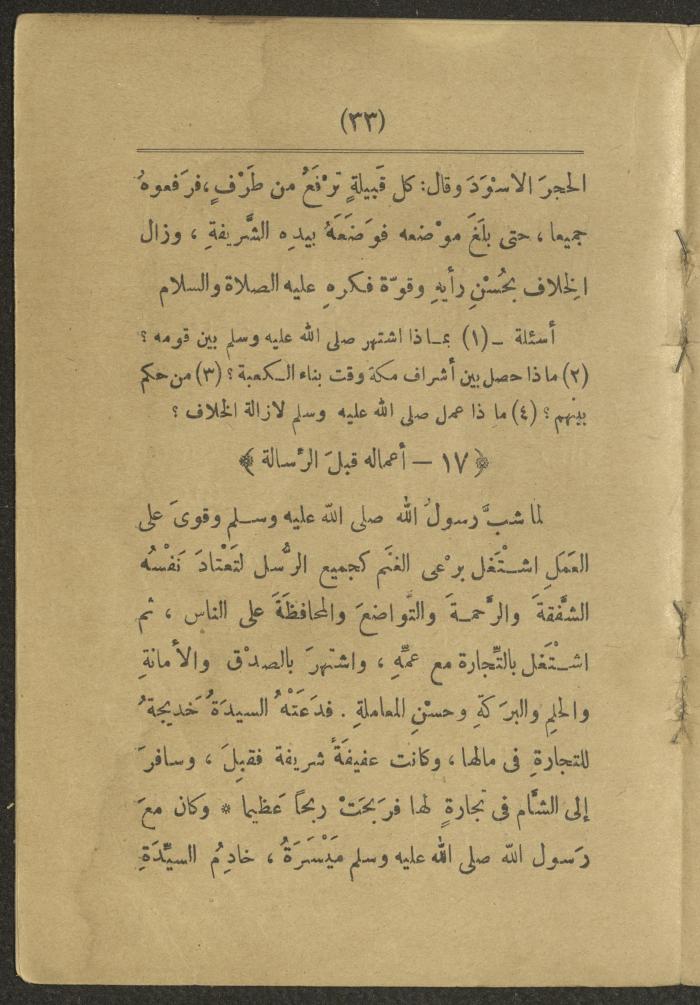 (٣٣)
الحجرَ الاسْوَدَ وقال: كل قَبيلةٍ ترْفَعُ من طَرْفٍ، فرَفعوهُ
جميعا، حتى بلَغَ موْضعه فوَضَعَهُ بيدِه الشَّريفةِ، وزال
الخِلاف بحُسْنِ رأيهِ وقوّة فكرهِ عليه الصلاة والسلام
أسئلة ــ (١) بماذا اشتهر صلى الله عليه وسلم بين قومه ؟
(٢) ماذا حصل بين أشراف مكة وقت بناء الكعبة ؟ (٣) من حكم
بينهم ؟ (٤) ما ذا عمل صلى الله عليه وسلم لازالة الخلاف ؟
﴿ ١٧ – أعماله قبلَ الرِّسالة ﴾
لما شبَّ رسولُ الله صلى الله عليه وسلم وقوىَ على
العَمَلِ اشْتَغل برعْى الغنَم كجميع الرُّسل لتَعْتادَ نَفْسُه
الشَّفقةَ والرَّحمةَ والتَّواضعَ والمحافظَةَ على الناس، ثم
اشْتَغل بالتِّجارة مع عمِّهِ، واشتهرَ بالصدْق والأمانةِ
والحلمِ والبرَكةِ وحسْنِ المعاملةِ. فدَعَتْهُ السيدَةُ خَديجةُ
للتجارةِ فى مالها، وكانت عفيفَةً شريفة فقبِلَ، وسافرَ
إلى الشَّام فى تجارةٍ لها فرَبحَتْ ربحاً عَظيما * وكان معَ
رَسول الله صلى الله عليه وسلم مَيْسَرَةُ، خادِمُ السيِّدَةِ